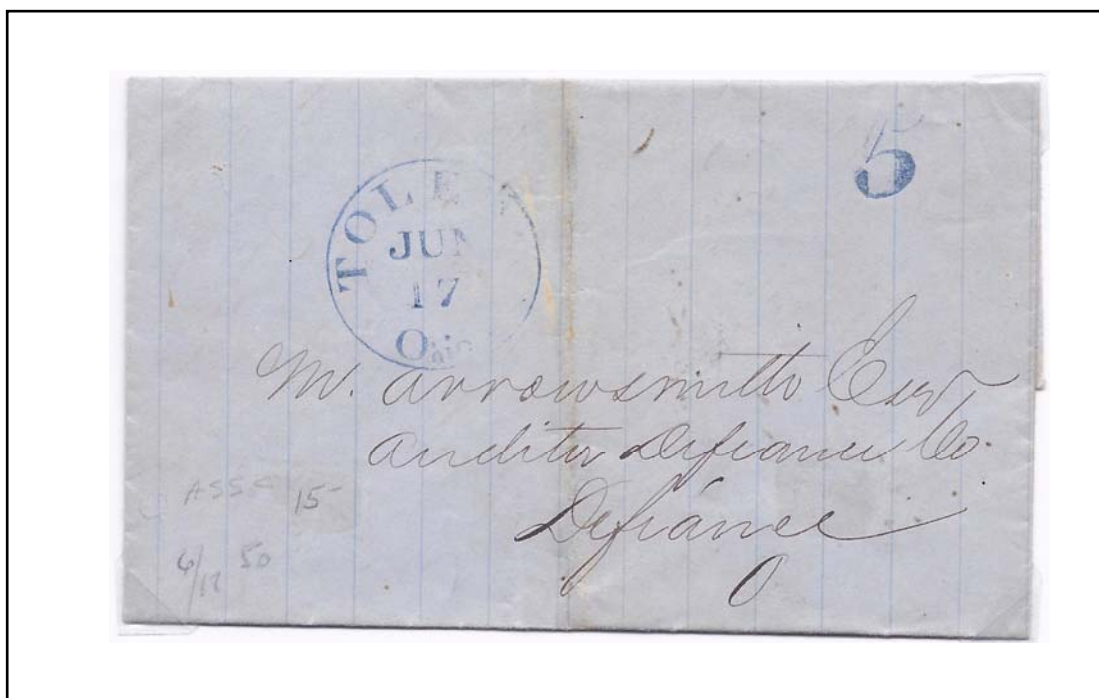 5
TOLE
JUN
17
Ohio
M. Arrowsmith Esqr
Auditor Defiance Co.
Defiance
O
15-
6/17 50